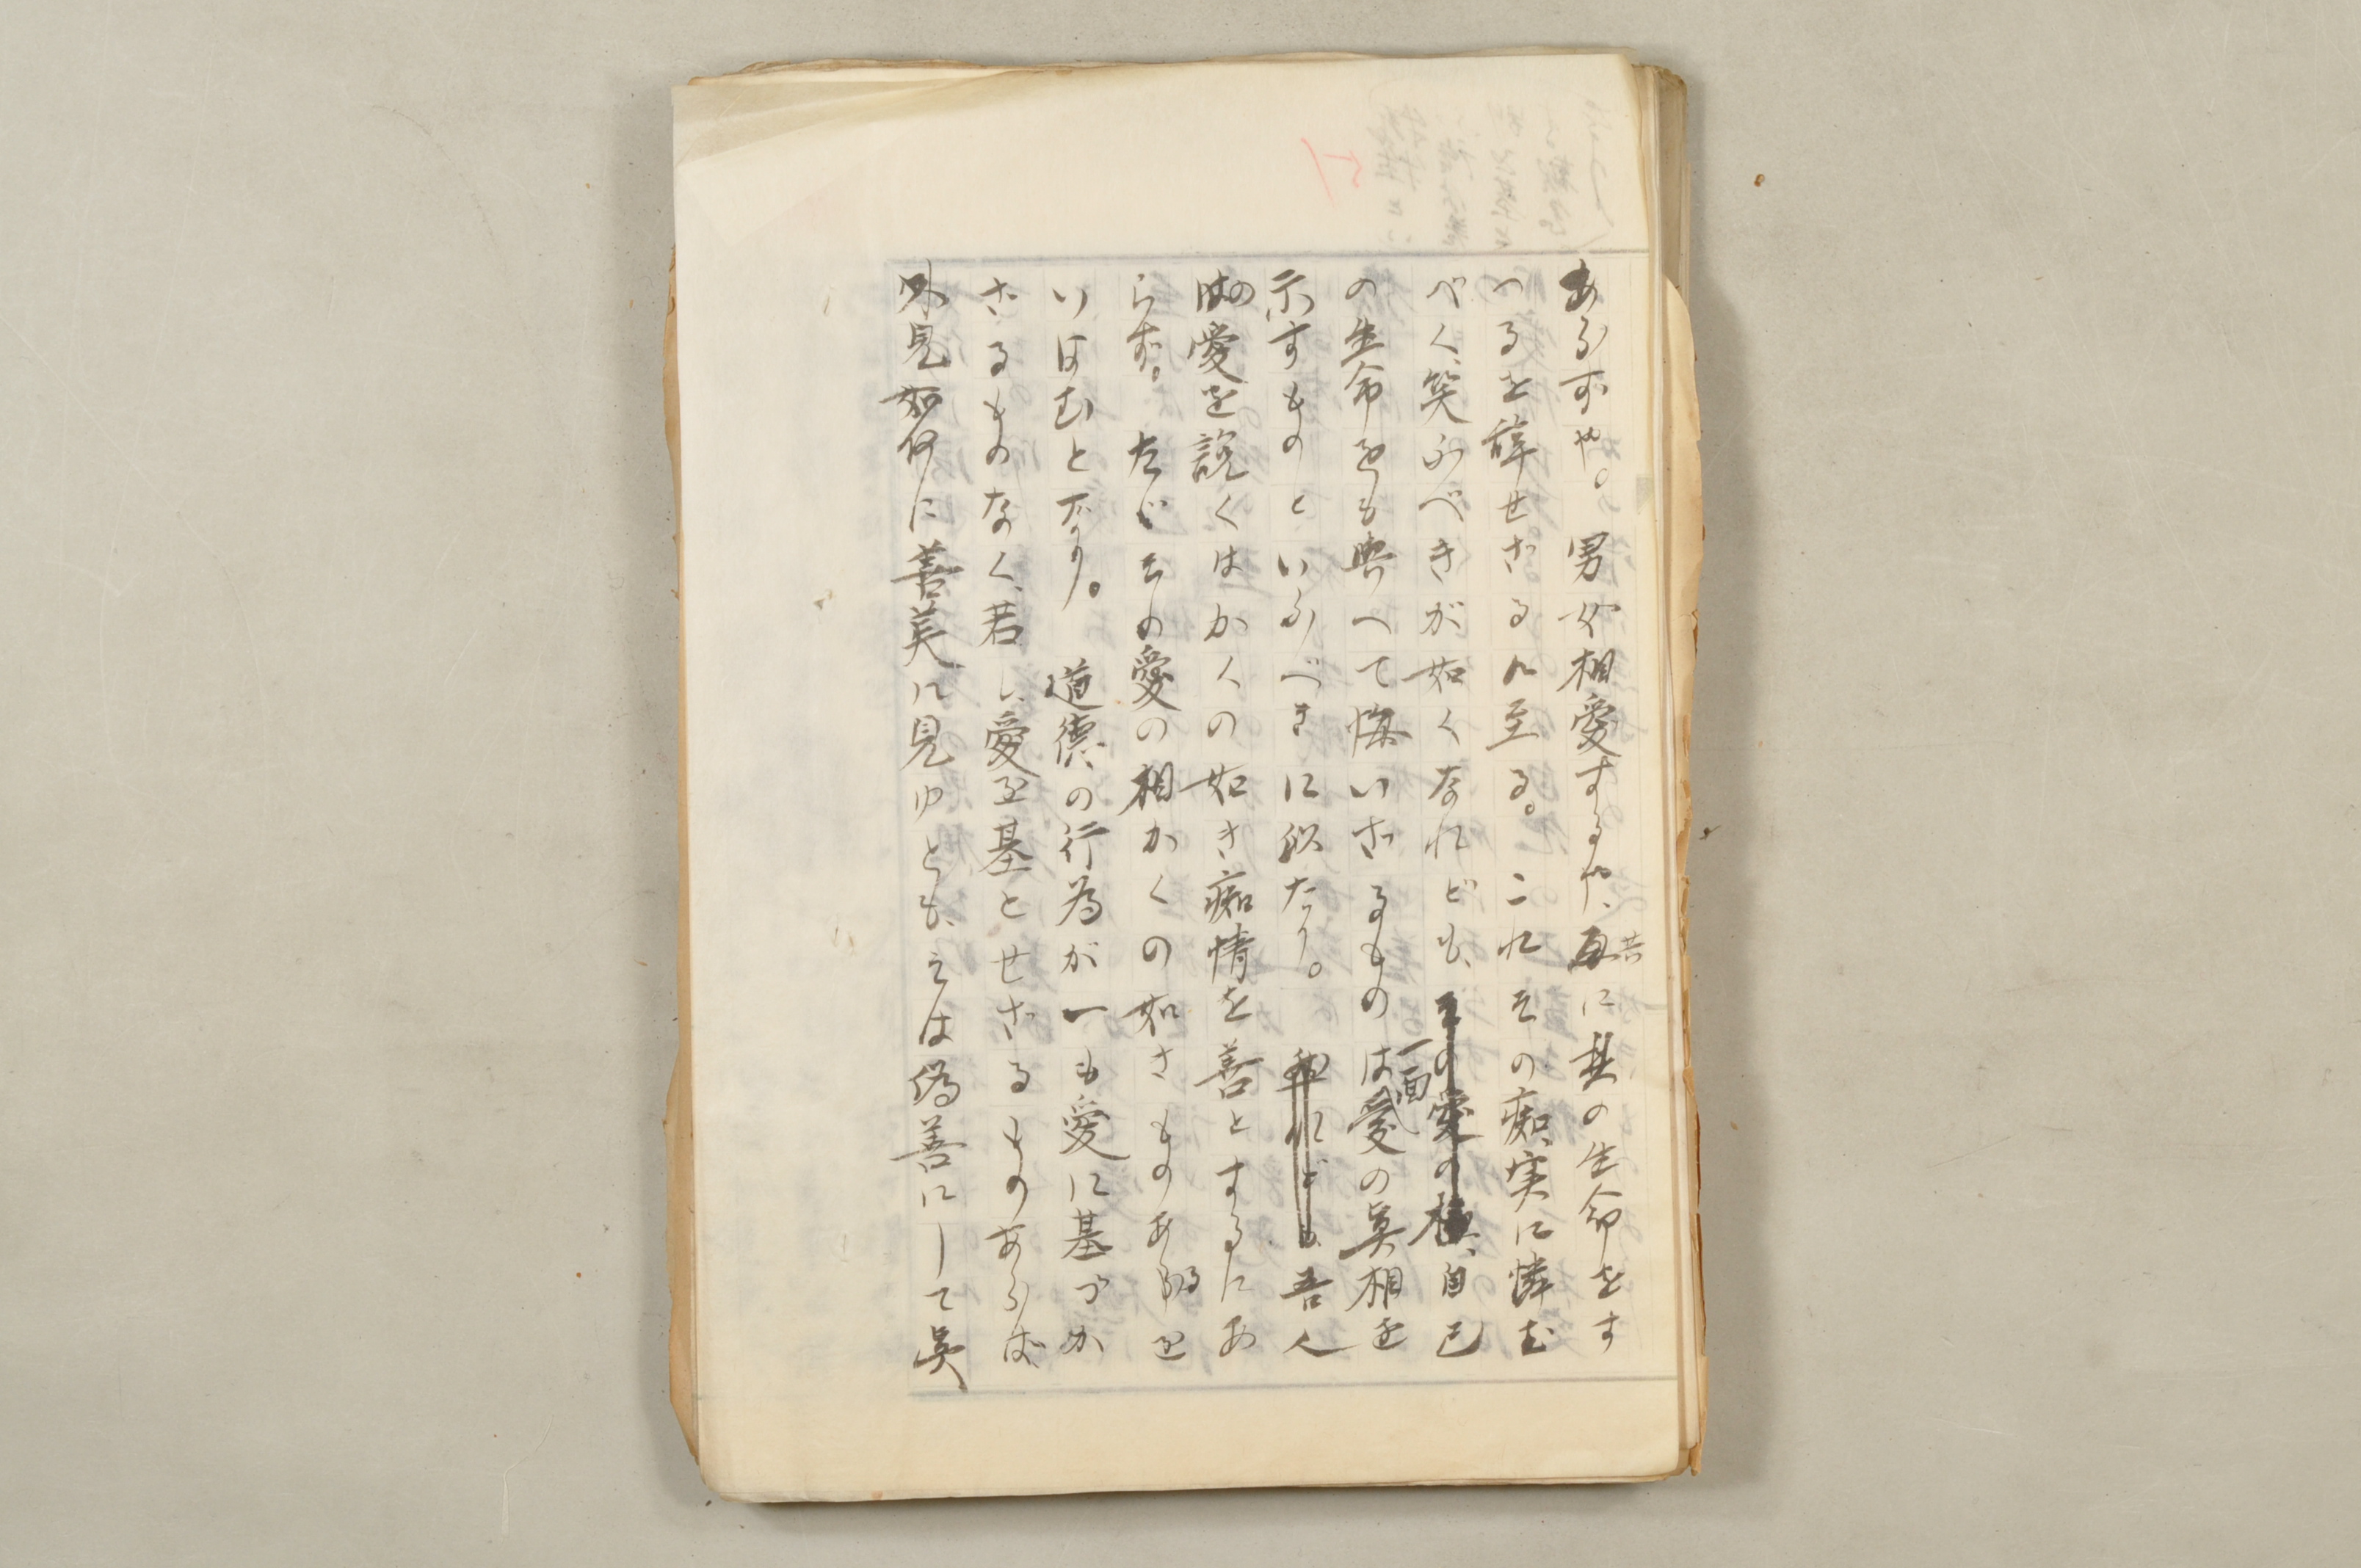 あらずや。男女相愛するや、共に其の生命をす
つるを辞せざるに至る。これその痴、実に憐む
べく、笑ふべきが如くなれども、自己
の生命をも与へて悔いざるものは一面愛の真相を
示すものといふべきに似たり。吾人
の愛を説くはかくの如き痴情を善とするにあ
らず。たゞその愛の相かくの如きものあるを
いはむとなり。道徳の行為が一も愛に基づか
ざるものなく、若し、愛を基とせざるものあらば、
外見如何に善美に見ゆとも、そは偽善にして真